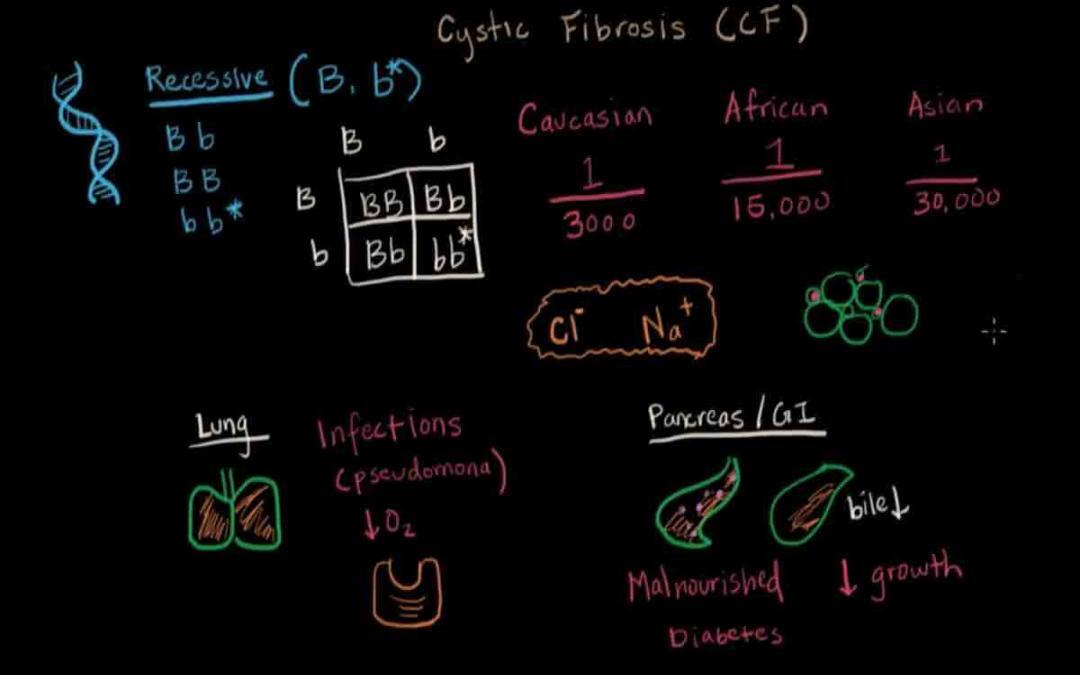 Cystic Fibrosis (CF)
Recessive (B, b*)
Bb
BB
bb*
B b
B BB Bb
b Bb bb*
Caucasian African Asian
1 1 1
3000 15,000 30,000
Cl- Na+
Lung
Infections
(pseudomona)
↓O2
Pancreas/GI
bile↓
Malnourished ↓ growth
Diabetes